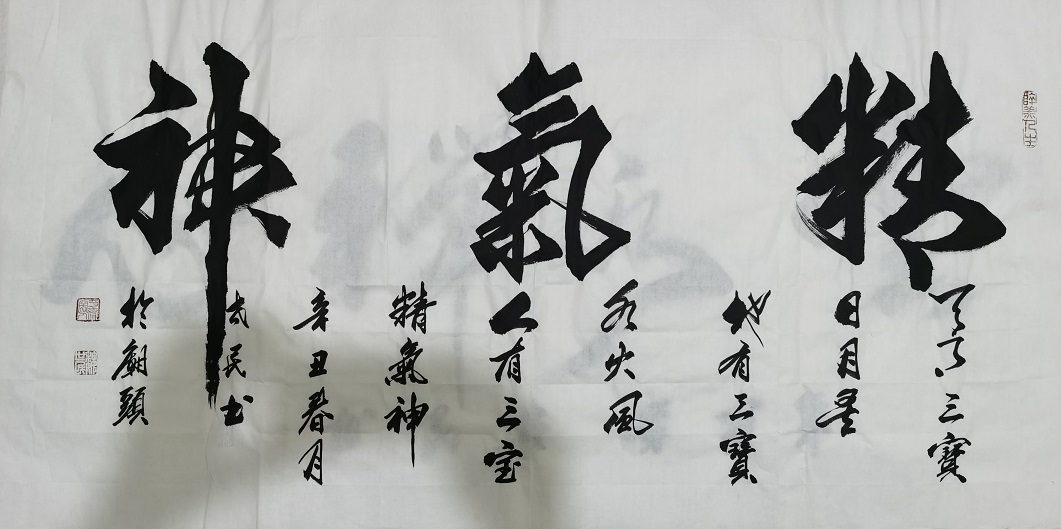 精氣神
天有三寶
日月星
地有三寶
水火風
人有三宝
精氣神
辛丑春月
民书
於
頭